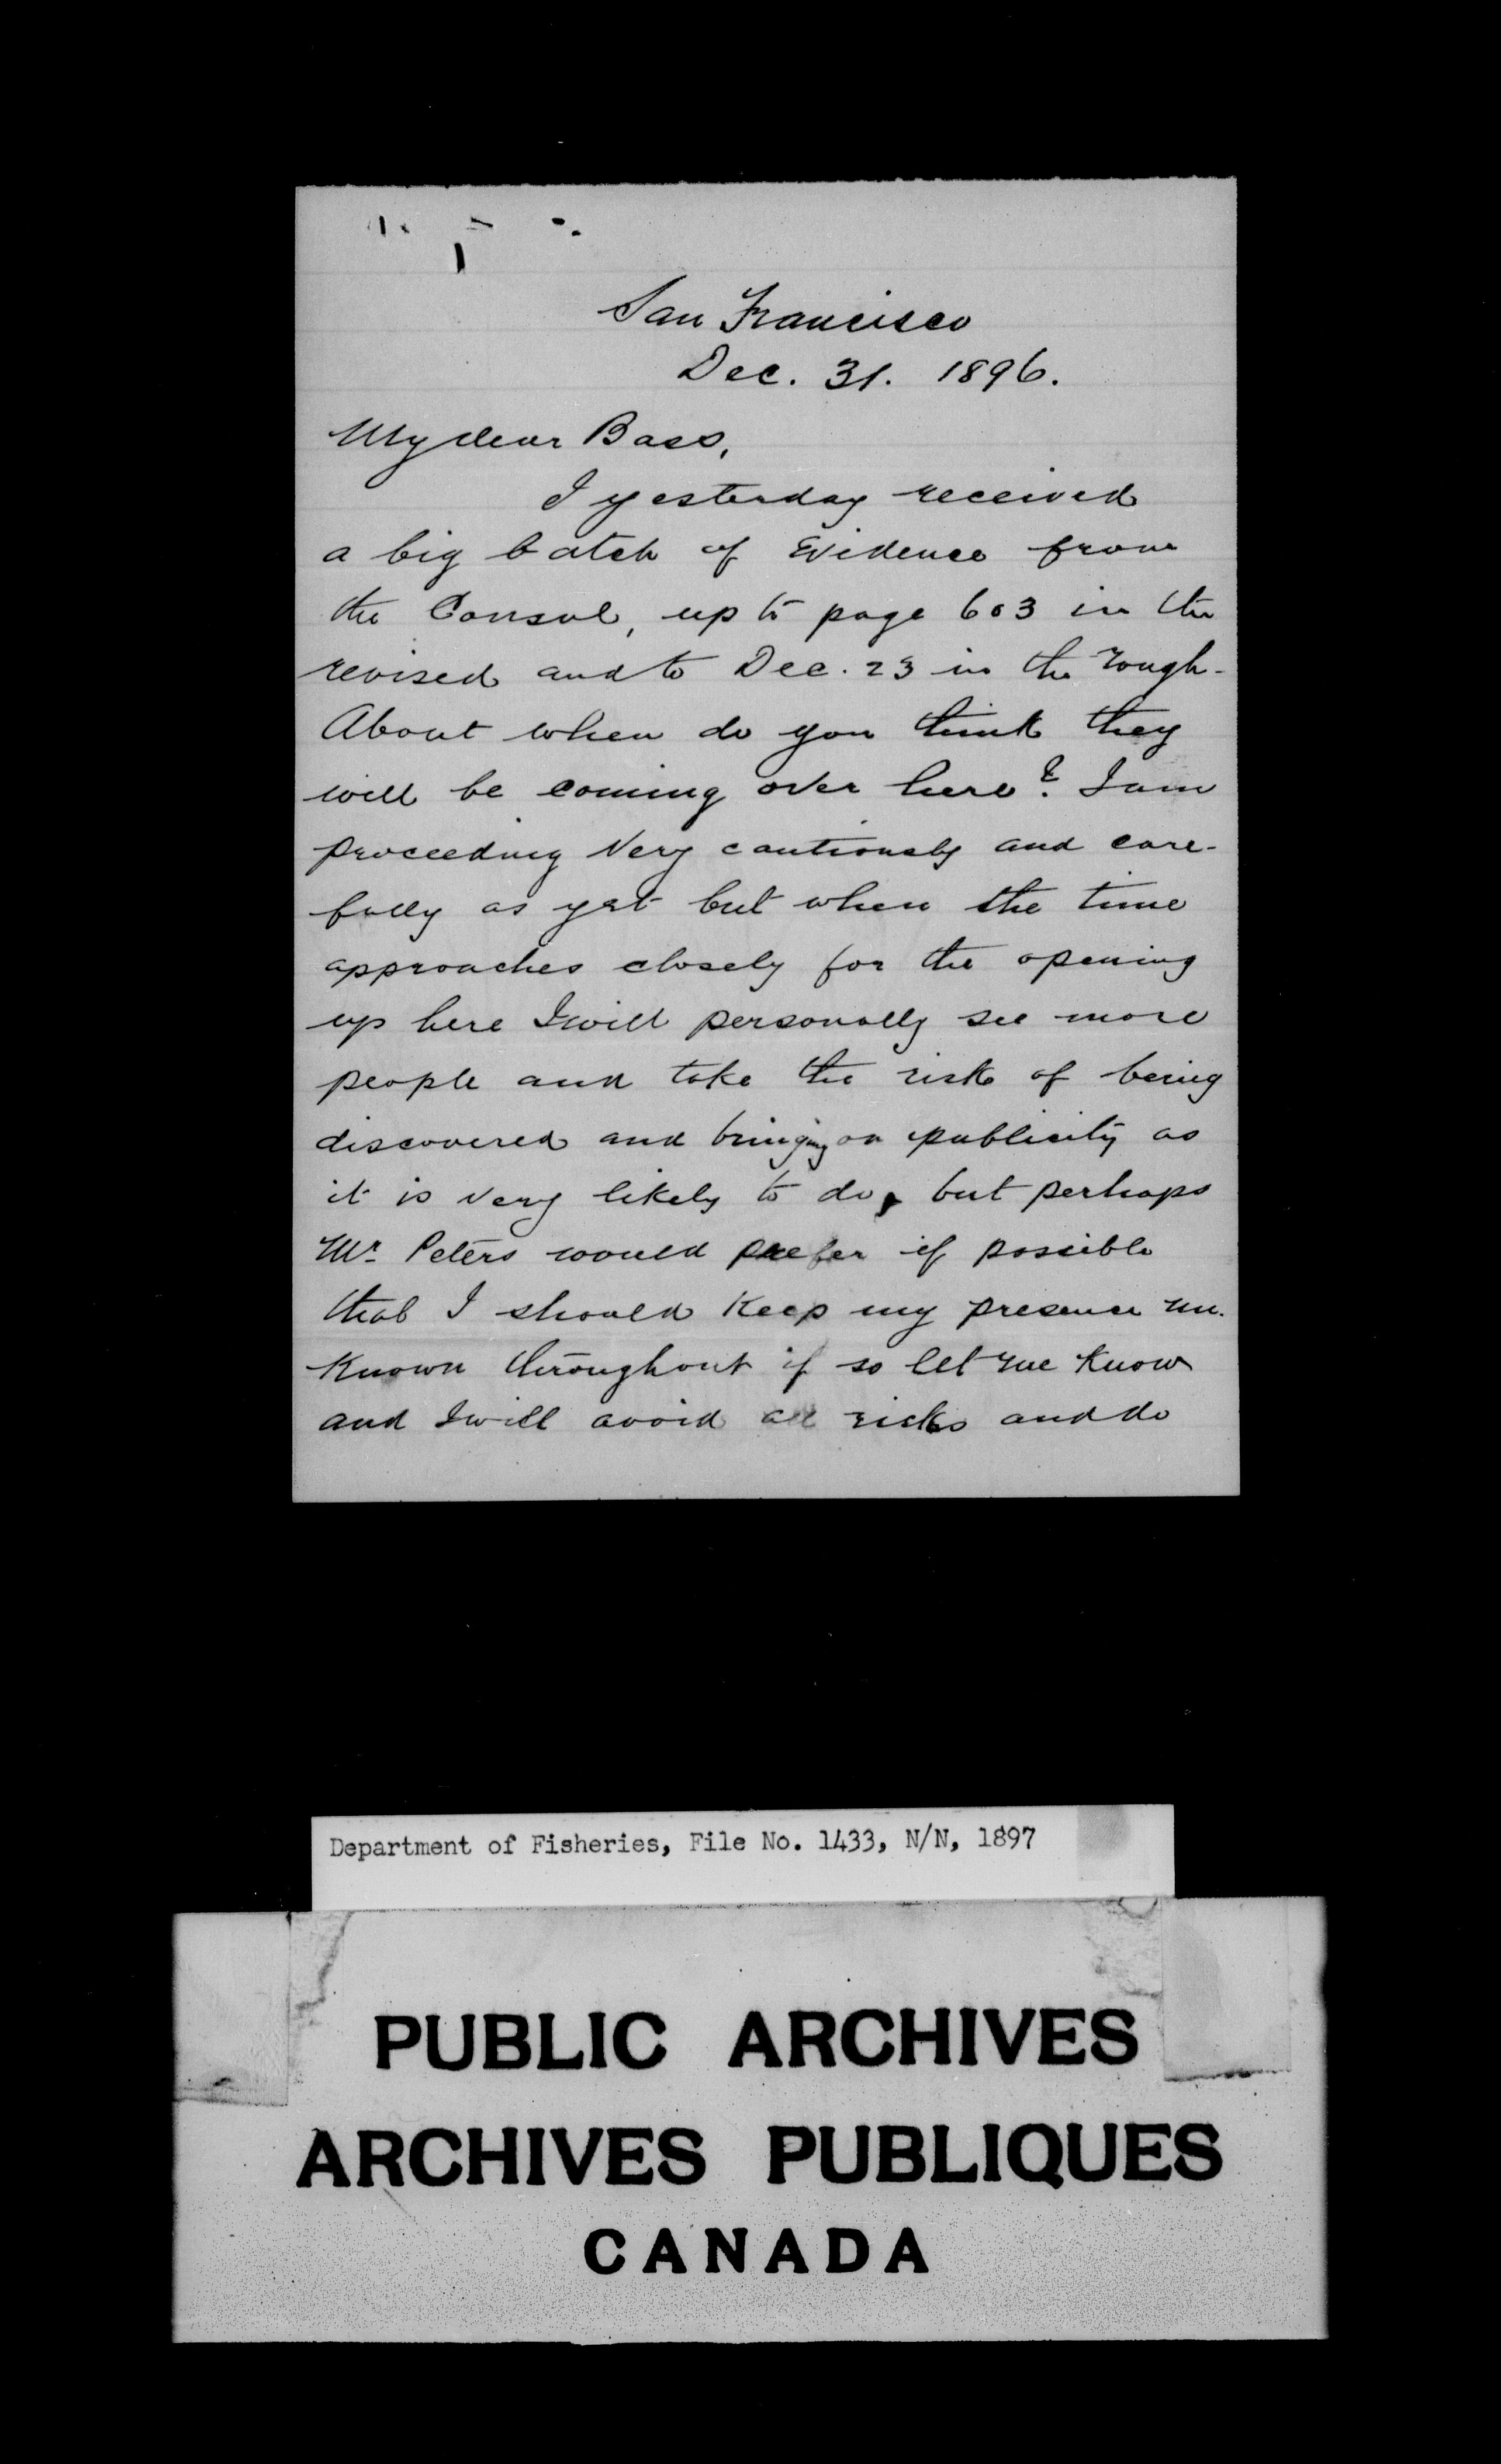 San Francisco
Dec. 31. 1896.
My dear Bass,
I yesterday received
a big batch of Evidence from
the Consul, up to page 603 in the
revised and to Dec. 23 in the rough.
About when do you think they
will be coming over here? I am
proceeding very cautiously and care-
fully as yet but when the time
approaches closely for the opening
up here I will personally see more
people and take the risk of being
discovered and bringing on publicity as
it is very likely to do, but perhaps
Mr. Peters would prefer if possible
that I should keep my presence un-
known throughout if so let me know
and I will avoid all risks and do
Department of Fisheries, File No. 1433, N/N, 1897
PUBLIC ARCHIVES
ARCHIVES PUBLIQUES
CANADA